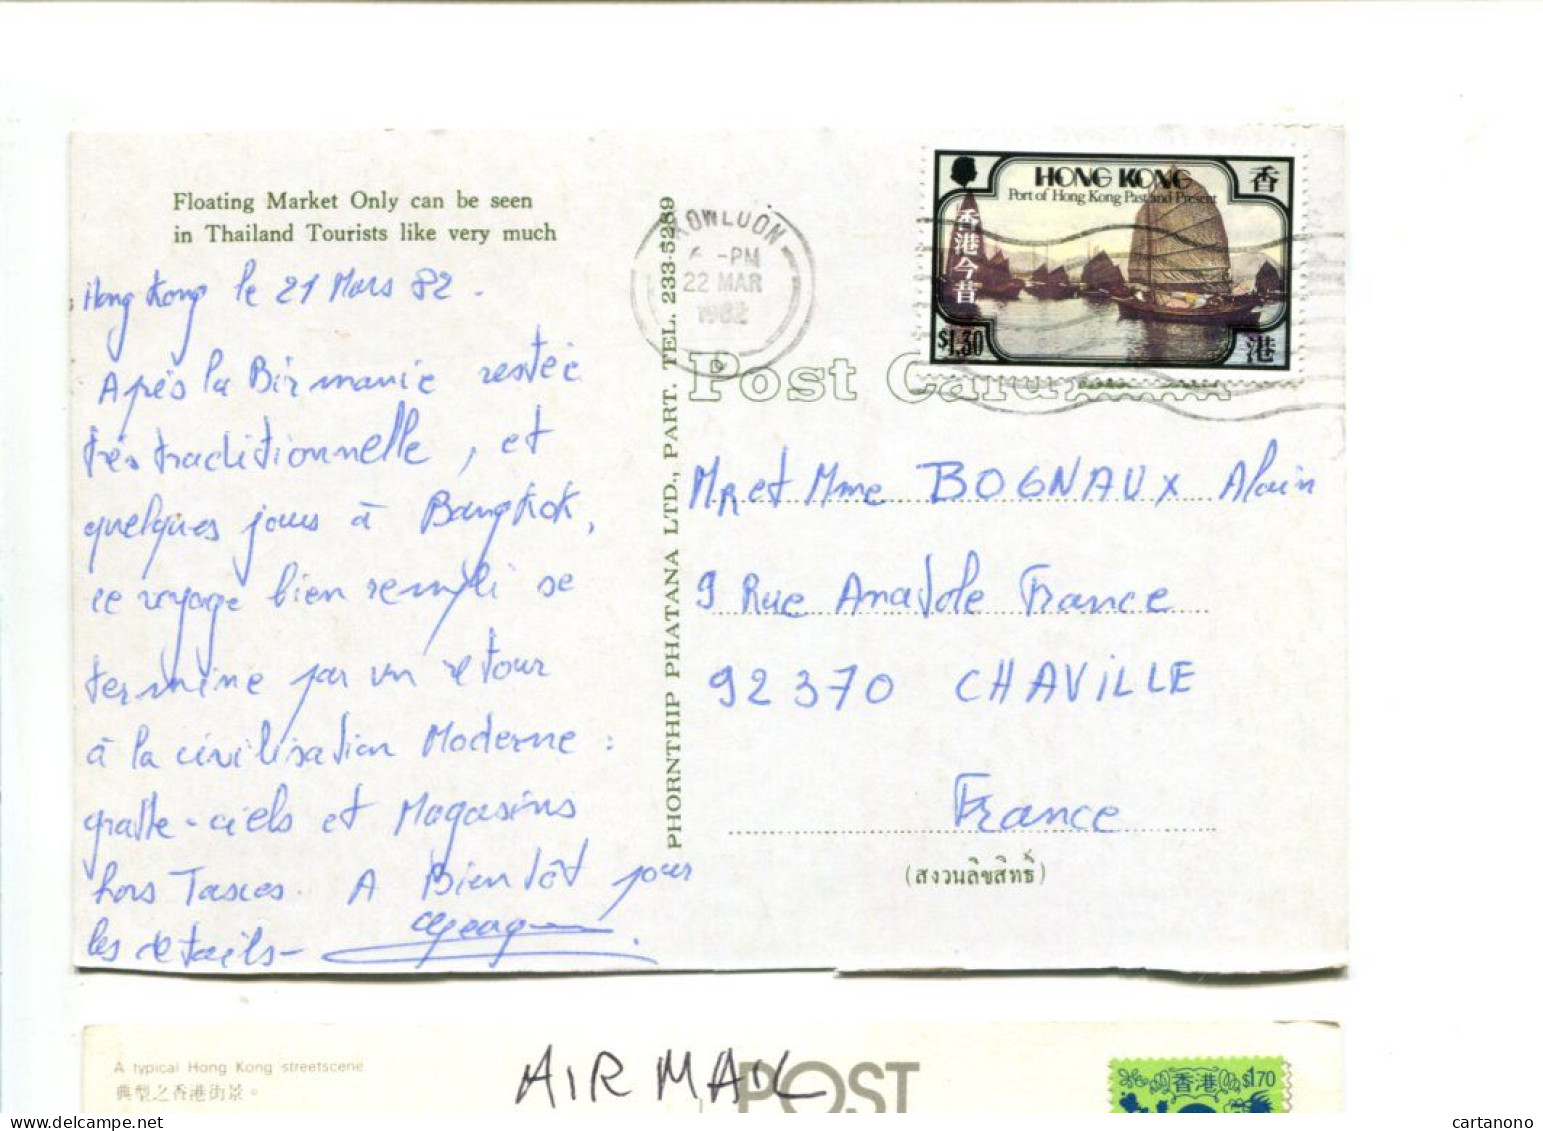 Floating Market Only can be seen
in Thailand Tourists like very much
Hong Kong le 21 Mars 82.
Après la Birmanie restée
très traditionnelle, et
quelques jours à Bangkok,
ce voyage bien rempli se
termine par un retour
à la civilisation Moderne :
gratte-ciels et Magasins
hors Taxes. A Bientôt pour
les détails-
PHORNTHIP PHATANA LTD., PART. TEL. 233-5289
KOWLOON
6 -PM
22 MAR
1982
D
HONG KONG
Port of Hong Kong Past and Present
香
港
香港今昔
$1.30
Post Card
MR et Mme BOGNAUX Alain
9 Rue Anatole France
92370 CHAVILLE
France
(สงวนลิขสิทธิ์)
A typical Hong Kong streetscene
典型之香港街景。
AIR MAIL
POST
香港 $1.70
cartanono